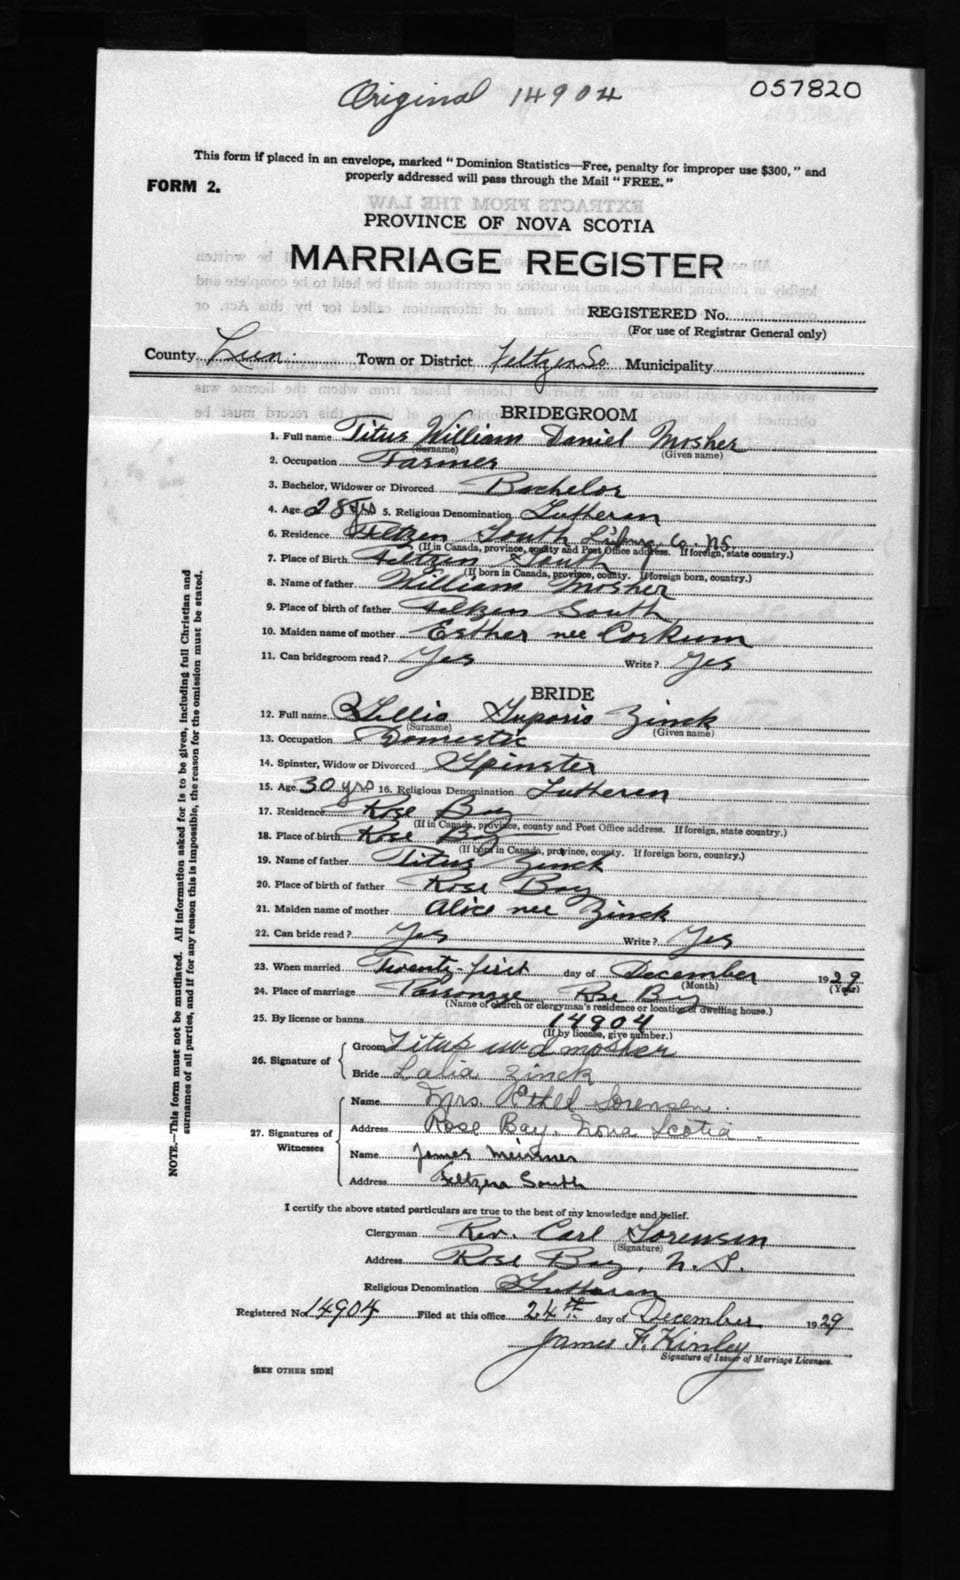 Original 14904
057820
This form if placed in an envelope, marked "Dominion Statistics—Free, penalty for improper use $300," and
properly addressed will pass through the Mail "FREE."
FORM 2.
EXTRACTS FROM THE LAW
PROVINCE OF NOVA SCOTIA
MARRIAGE REGISTER
REGISTERED No.
(For use of Registrar General only)
County Lun. Town or District Feltzen So Municipality
BRIDEGROOM
1. Full name Titus William Daniel Mosher
(Surname) (Given name)
2. Occupation Farmer
3. Bachelor, Widower or Divorced Bachelor
4. Age 28 yrs 5. Religious Denomination Lutheran
6. Residence Feltzen South L'burg Co. N.S.
(If in Canada, province, county and Post Office address. If foreign, state country.)
7. Place of Birth Feltzen South
(If born in Canada, province, county. If foreign born, country.)
8. Name of father William Mosher
9. Place of birth of father Feltzen South
10. Maiden name of mother Esther nee Corkum
11. Can bridegroom read? Yes Write? Yes
BRIDE
12. Full name Zinck
(Surname) (Given name)
13. Occupation Domestic
14. Spinster, Widow or Divorced Spinster
15. Age 30 yrs 16. Religious Denomination Lutheran
17. Residence Rose Bay
(If in Canada, province, county and Post Office address. If foreign, state country.)
18. Place of birth Rose Bay
(If born in Canada, province, county. If foreign born, country.)
19. Name of father Titus Zinck
20. Place of birth of father Rose Bay
21. Maiden name of mother Alice nee Zinck
22. Can bride read? Yes Write? Yes
23. When married Twenty-first day of December 1929
(Month) (Year)
24. Place of marriage Parsonage Rose Bay
(Name of church or clergyman's residence or location of dwelling house.)
25. By license or banns 14904
(If by license, give number.)
26. Signature of
Groom Titus W D Mosher
Bride Lalia Zinck
27. Signatures of Witnesses
Name Mrs. Ethel Sorensen.
Address Rose Bay, Nova Scotia
Name James
Address Feltzen South
I certify the above stated particulars are true to the best of my knowledge and belief.
Clergyman Rev. Carl Sorensen
(Signature)
Address Rose Bay, N.S.
Religious Denomination Lutheran
Registered No 14904 Filed at this office 24th day of December 1929
James F. Kinley
Signature of Issuer of Marriage Licenses.
[SEE OTHER SIDE]
NOTE.—This form must not be mutilated. All information asked for is to be given, including full Christian and
surnames of all parties, and if for any reason this is impossible, the reason for the omission must be stated.